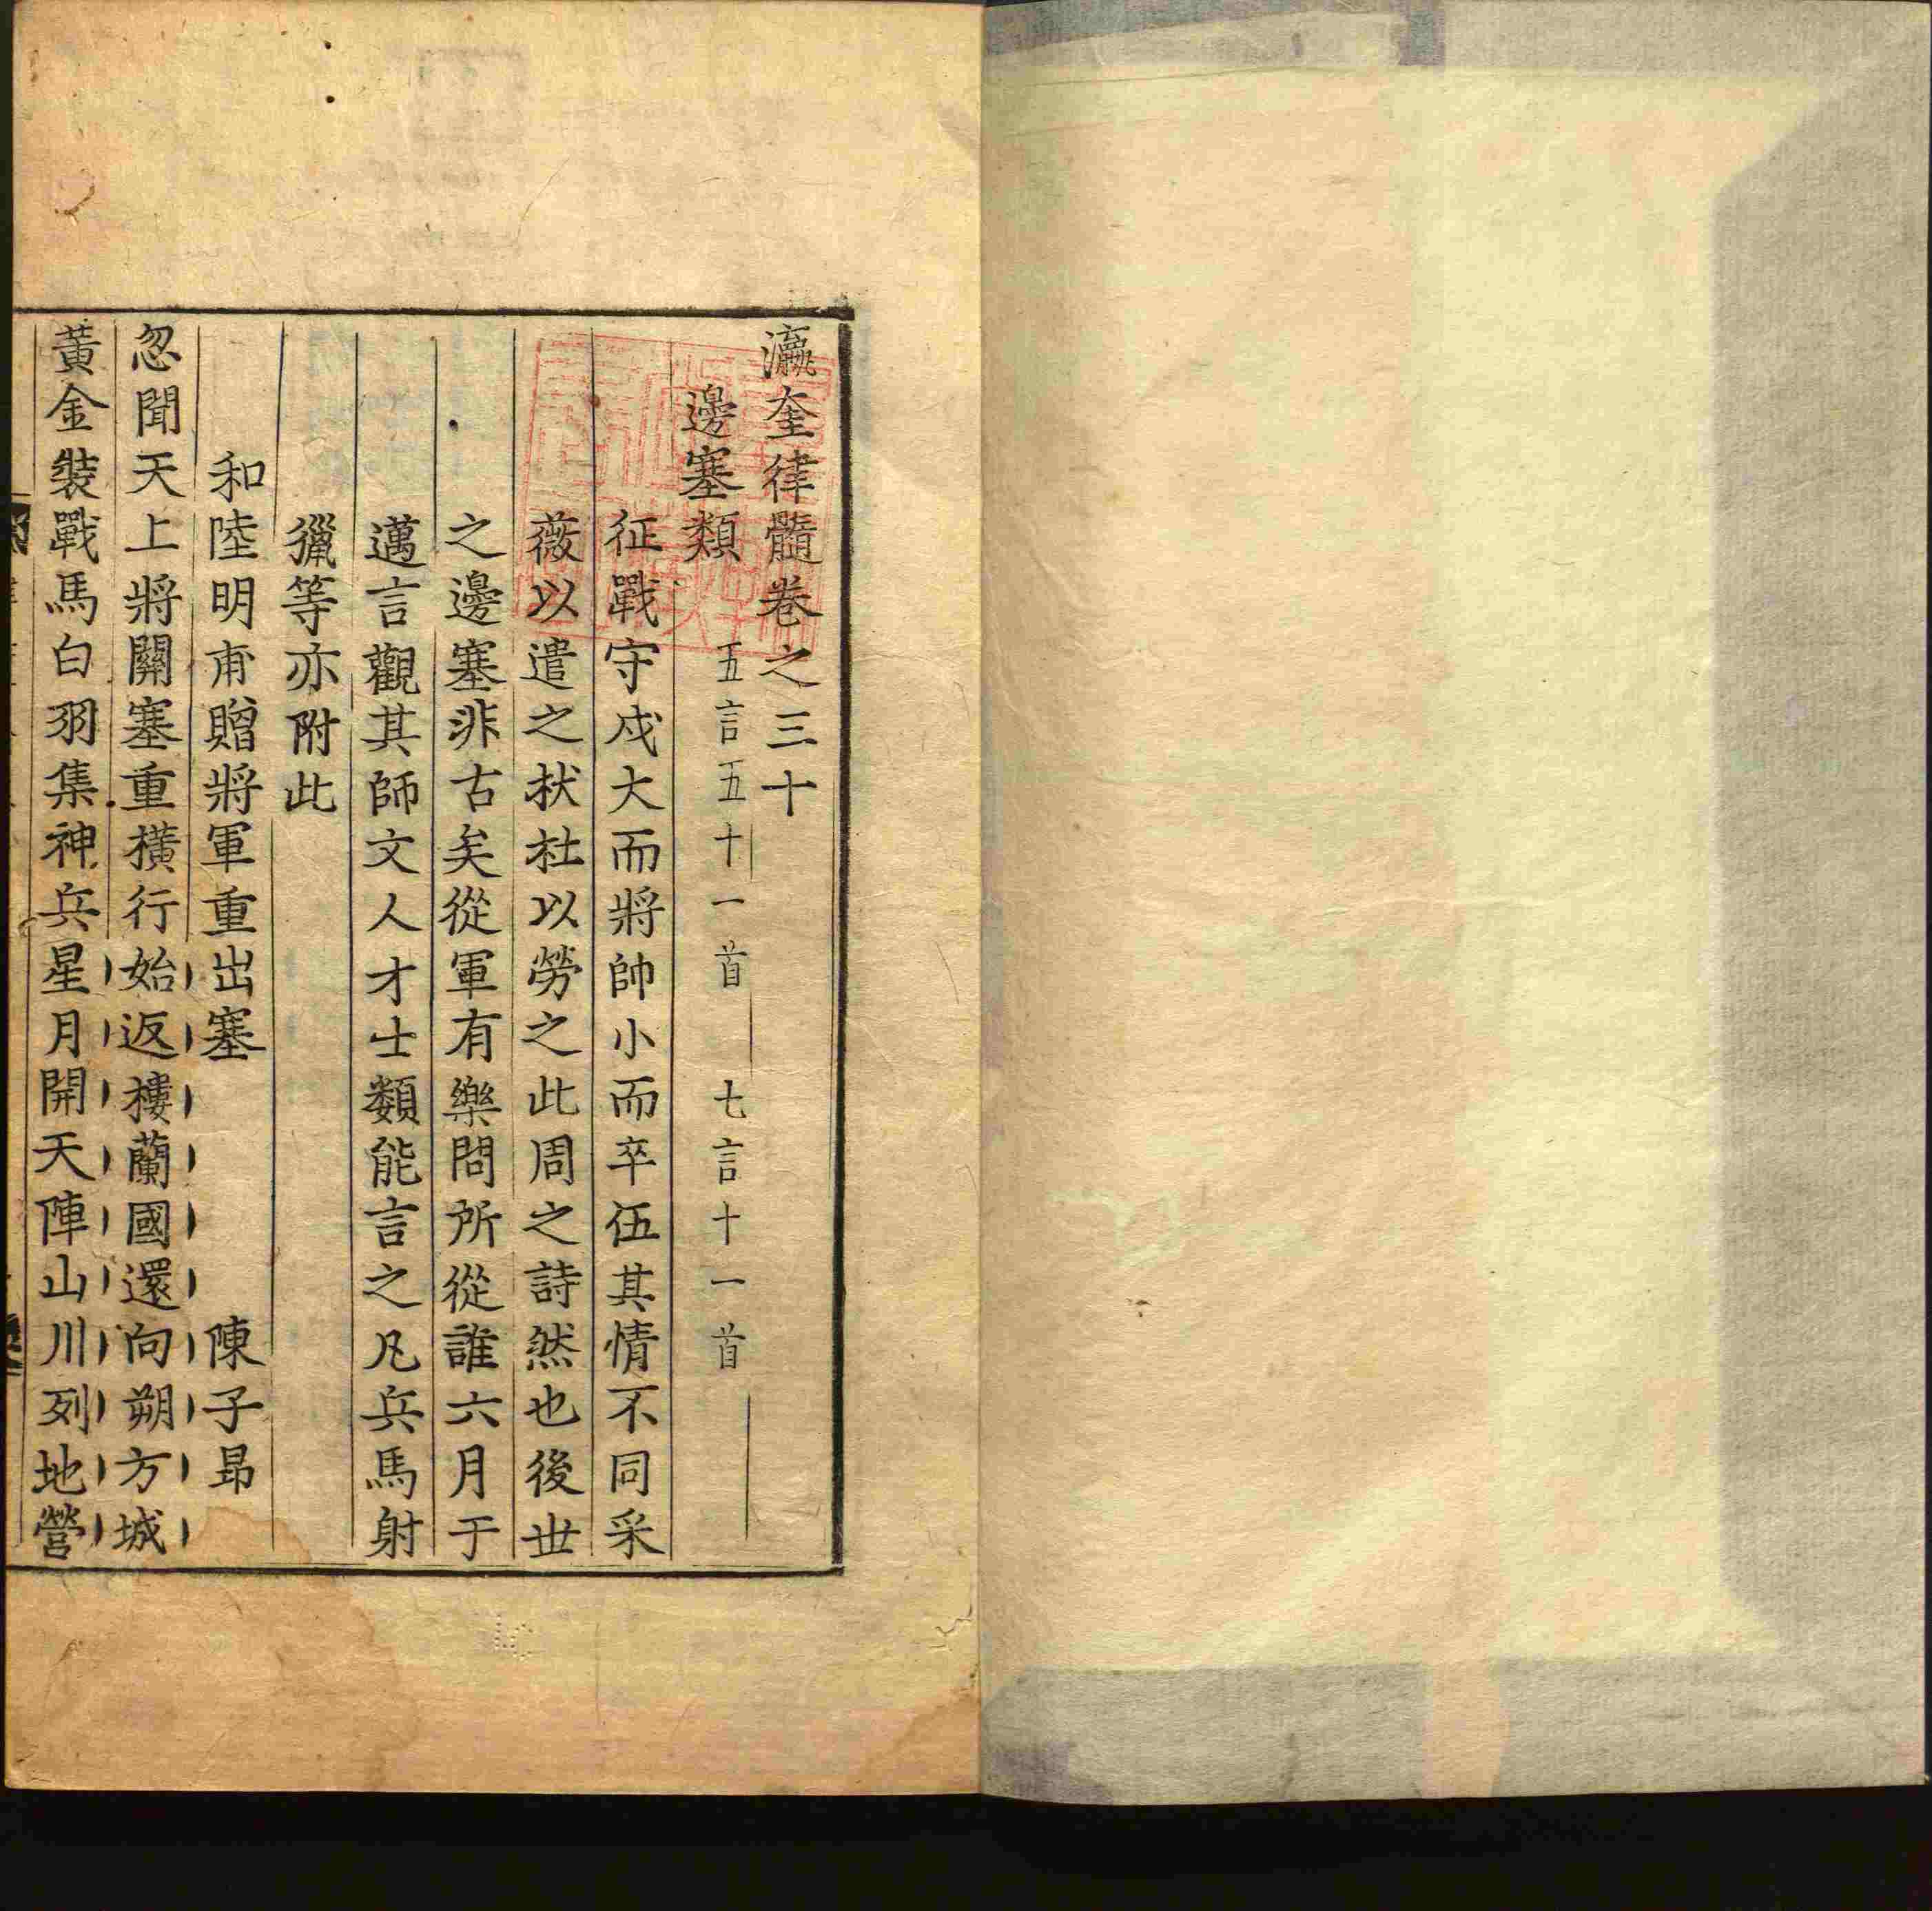 瀛奎律髓卷之三十
邊塞類 五言五十一首 七言十一首
征戰守戍大而將帥小而卒伍其情不同采
薇以遣之杕杜以勞之此周之詩然也後世
之邊塞非古矣從軍有樂問所從誰六月于
邁言觀其師文人才士類能言之凡兵馬射
獵等亦附此
和陸明甫贈將軍重出塞 陳子昻
忽聞天上將關塞重橫行始返樓蘭國還向朔方城
黃金裝戰馬白羽集神兵星月開天陣山川列地營